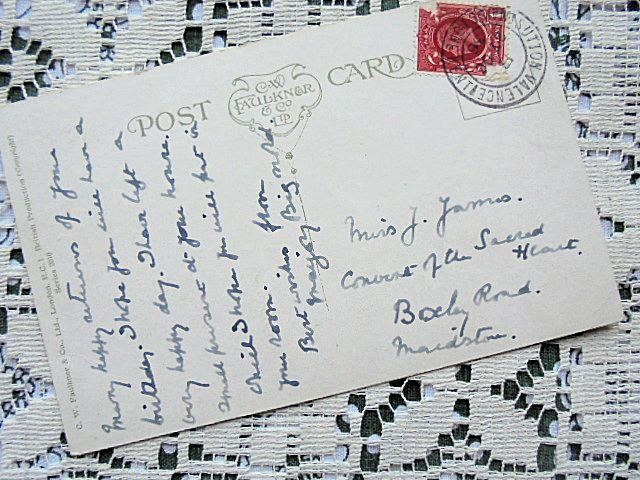 POST CARD
C.W.
FAULKNER
& Co
LTD.
C. W. Faulkner & Co., Ltd., London, E.C.1 British Production (Copyright)
Series 2010
SUTTON VALENCE
Many happy returns of your
birthday. I hope you will have a
very happy day. I have left a
small present at your house.
which I hope you will put in
your room. from
Best wishes Big
Marjory
Miss J. James.
Convent of the Sacred
Heart.
Boxley Road.
Maidstone.